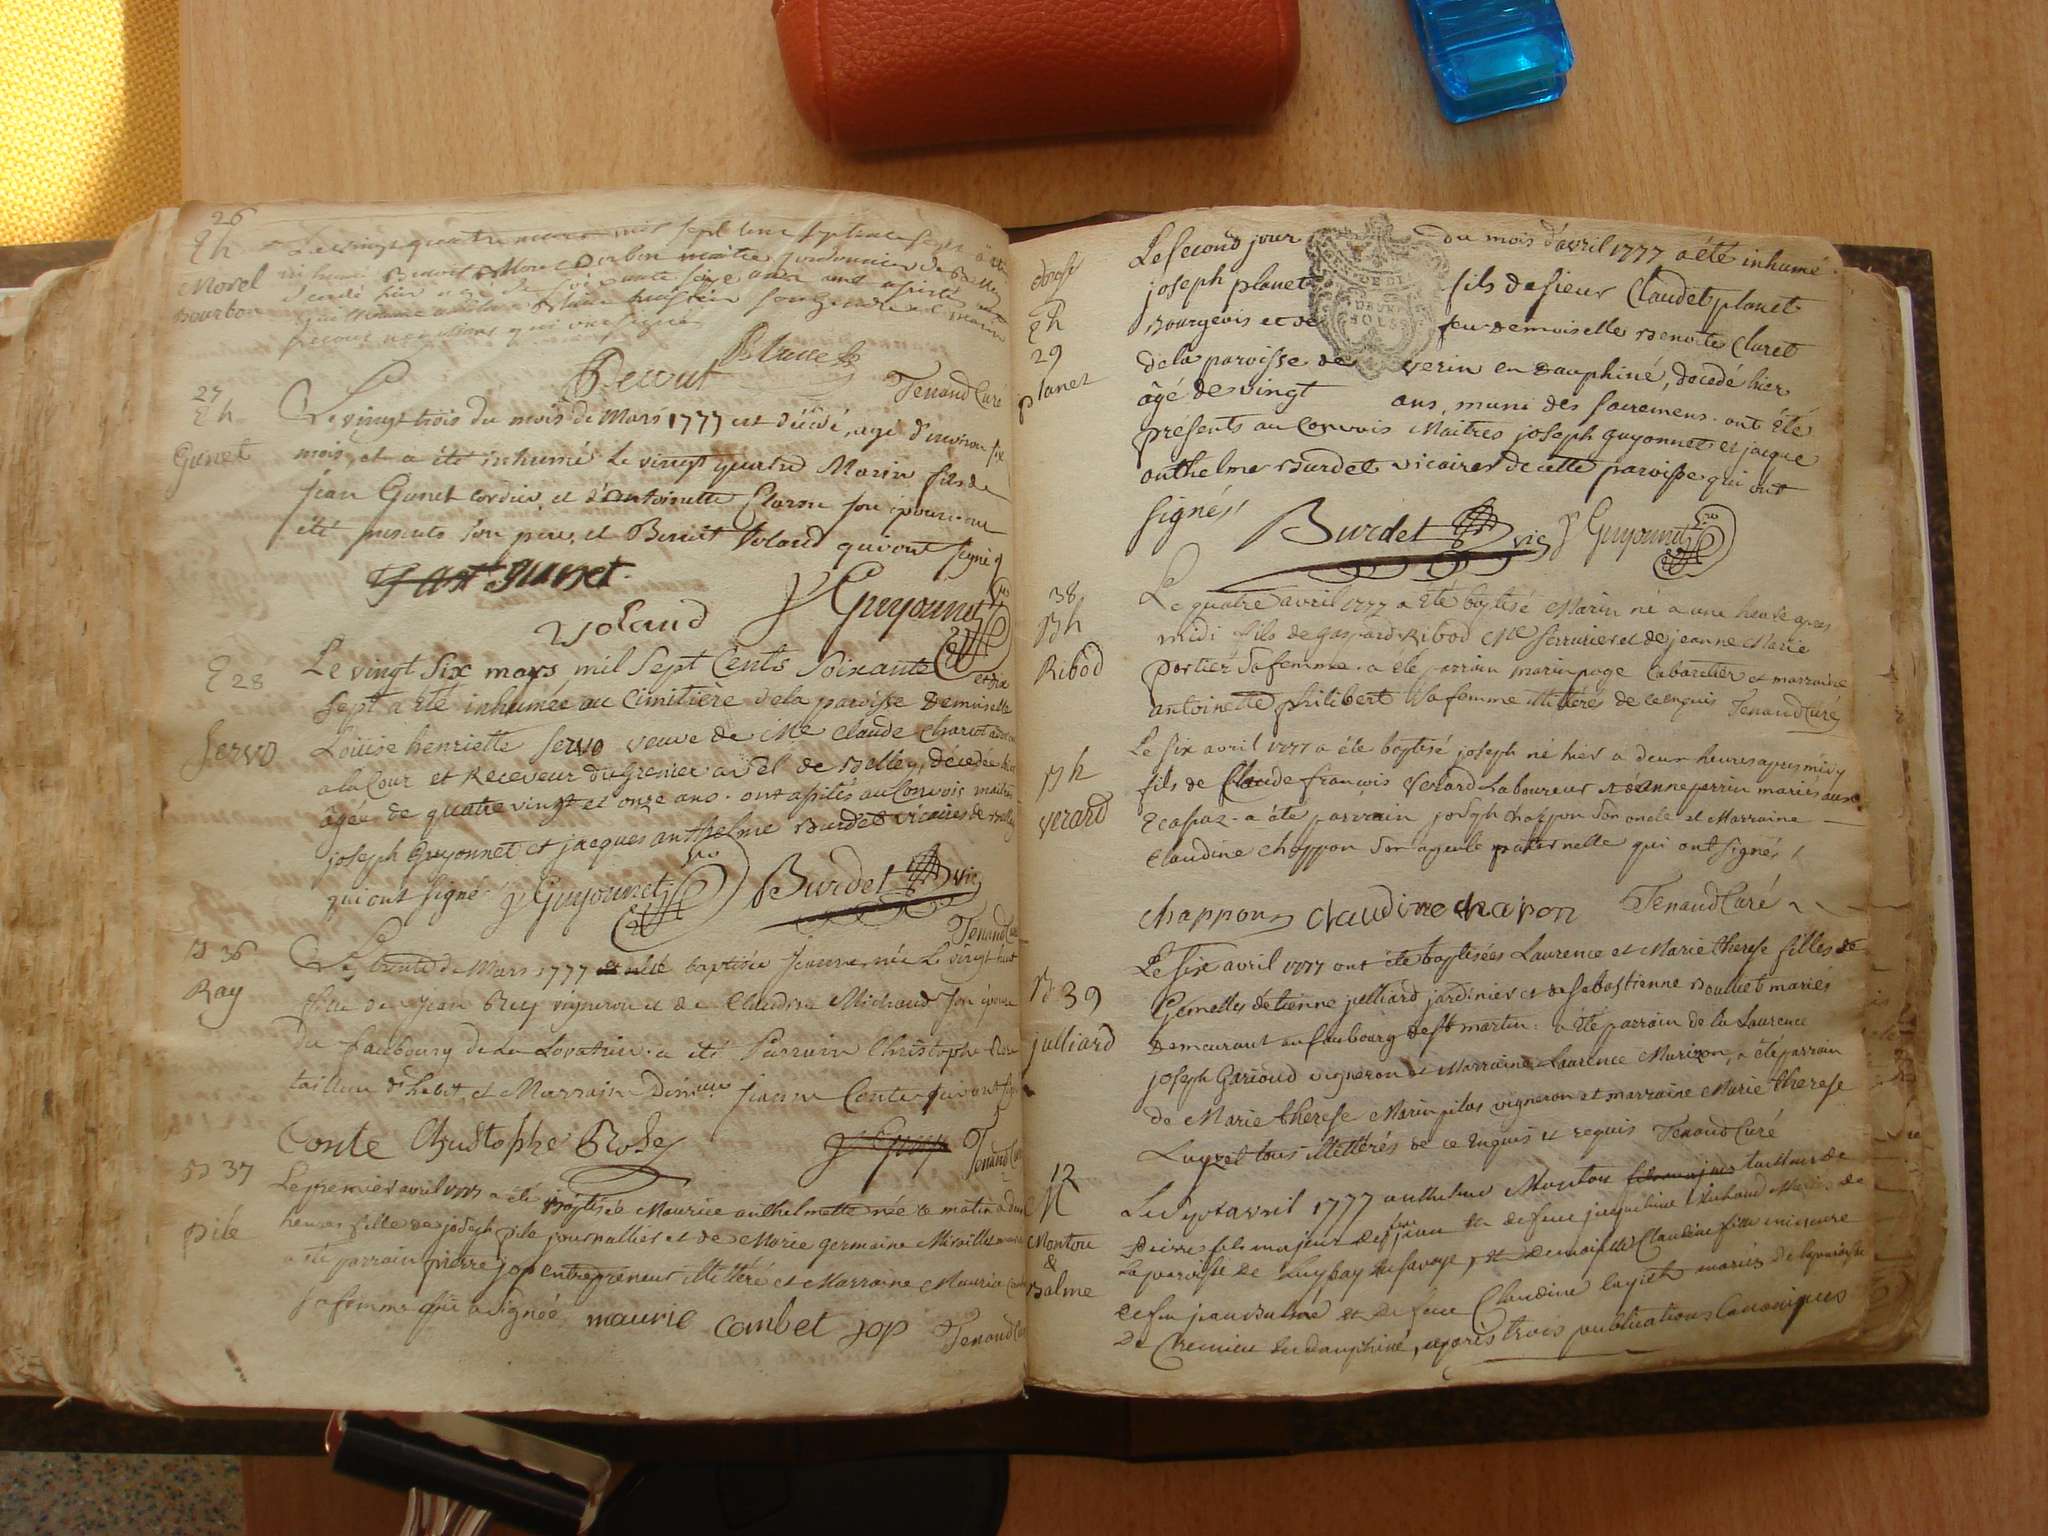 26
Eh
Morel
Bourbon
Le vingt quatre mars mil sept cent septante sept a été
inhumé Benoit Morel Bourbon maitre cordonnier de Belley
décédé hier agé de soixante seize ans ont assisté
Blanc
Recout
Tenand Curé
27
Eh
Gunet
Le vingt trois du mois de Mars 1777 est décédé, agé d'environ six
mois, et a été inhumé le vingt quatre Marin fils de
jean Gunet cordier, et d'Antoinette son épouse ont
été présents son pere, et Benoit Voland qui ont signé
gunet
voland J Guyonnet
E 28
Servo
Le vingt Six mars mil Sept Cents Soixante et dix
Sept a été inhumée au Cimitière de la paroisse Demoiselle
Loüise henriette Servo veuve de Me Claude Charcot
a la Cour et Receveur du Grenier a Sel de Belley, décédée hier
âgée de quatre vingt et onze ans. ont assités au Convois maitres
joseph Guyonnet et jacques anthelme Burdet vicaires de Belley
qui ont signé J Guyonnet Burdet vic
Tenand Curé
B 36
Ray
Le trente de Mars 1777 a été baptisée jeanne née Le vingt huit
fille de jean Rey vigneron et de Claudine Michaud son épouse
du faubourg de La a été Parrain Christophe Rose
tailleur d'habit, et Marraine jeanne Conte qui ont signé
Conte Christophe Rose
Tenand Curé
B 37
pile
Le premier avril 1777 a été Baptisée Maurice anthelmette née ce matin a deux
heures fille de joseph pile journallier et de Marie germaine Miraillet mariés
a été parrain pierre jop entrepreneur illitéré et Marraine Maurice Combet
sa femme qui a signée maurie combet jop Tenand Curé
Eh
29
planet
Le second jour du mois d'avril 1777 a été inhumé
joseph planet fils de sieur Claudet planet
Bourgeois et de feu demoiselle Benoite Claret
de la paroisse de verin en Dauphiné, décédé hier
âgé de vingt ans, muni des sacremens. ont été
présents au Convois Maitres joseph guyonnet et jacque
anthelme Burdet vicaires de cette paroisse qui ont
signés
Burdet vic J Guyonnet
38
Bh
Ribod
Le quatre avril 1777 a été baptisé Marin né a une heure apres
midi fils de gaspard Ribod Me serrurier et de jeanne Marie
portier sa femme. a été parrain marin page Cabaretier et marraine
antoinette philibert sa femme illitérés de ce enquis Tenand Curé
Bh
verard
Le six avril 1777 a été baptisé joseph né hier a deux heures apres midy
fils de Claude françois verard Laboureur et d'anne perrin mariés
Ecassaz. a été parrain joseph chappon son oncle et Marraine
Claudine chappon son ayeule paternelle qui ont signés
chappon claudine chapon Tenand Curé
B 39
julliard
Le six avril 1777 ont été baptisées Laurence et Marie therese filles
Gemelles d'etienne julliard jardinier et de sebastienne Bouluet mariés
Demeurant au faubourg de st martin. a été parrain de la Laurence
joseph Garioud vigneron et Marraine Laurence Marizon, a été parrain
de Marie therese Marin pilas vigneron et marraine Marie therese
Luquet tous illitérés de ce Enquis et requis Tenand Curé
12
M
Montou
&
Balme
Le sept avril 1777 anthelme Montou tailleur de
pierre fils majeur de feu jean et de feue jacqueline Michaud Mariés de
la paroisse de en savoye, et demoiselle Claudine fille mineure
de feu jean Balme et de feue Claudine mariés de la paroisse
De Cremieu en dauphiné, apres trois publications Canoniques